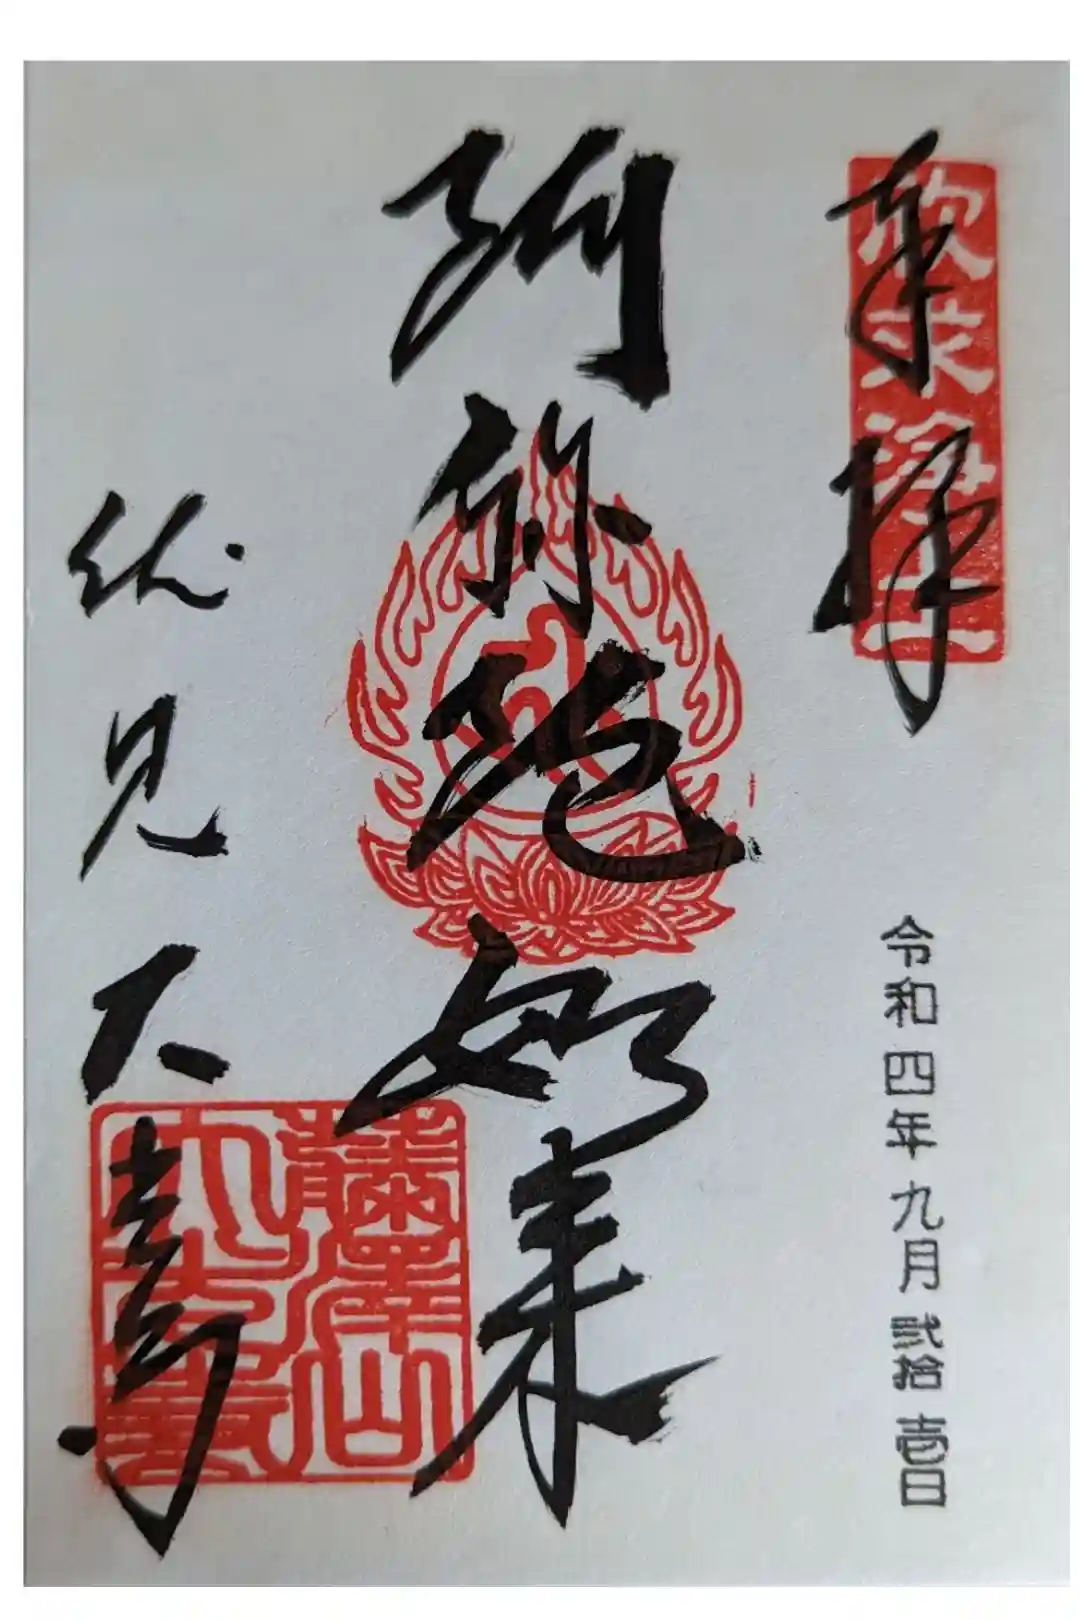 奉拝
欣求浄土
令和四年九月弐拾壱日
阿弥陀如来
伏見大